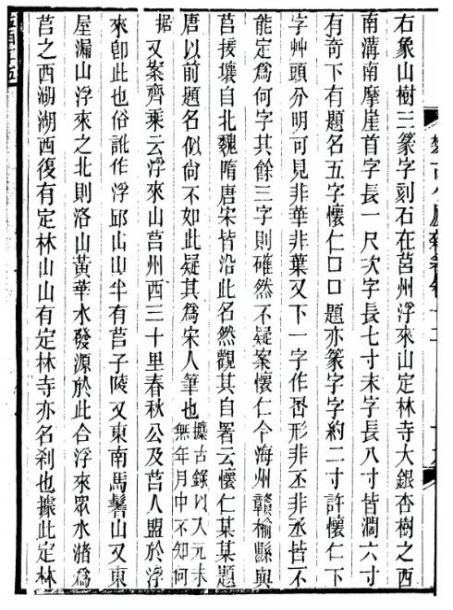 右象山樹三篆字刻石在莒州浮來山定林寺大銀杏樹之西
南溝南摩崖首字長一尺次字長七寸末字長八寸皆濶六寸
有奇下有題名五字懷仁口口題亦篆字字約二寸許懷仁下
字艸頭分明可見非華非葉又下一字作形非丕非丞皆不
能定爲何字其餘三字則確然不疑案懷仁今海州贛榆縣與
莒接壤自北魏隋唐宋皆沿此名然觀其自署云懷仁某某題
唐以前題名似尚不如此疑其爲宋人筆也
攈古錄以入元末
無年月中不知何
据 又案齊乘云浮來山莒州西三十里春秋公及莒人盟於浮
來卽此也俗訛作浮邱山山半有莒子陵又東南馬鬐山又東
屋漏山浮來之北則洛山黃華水發源於此合浮來眾水瀦爲
莒之西湖湖西復有定林山山有定林寺亦名刹也據此定林